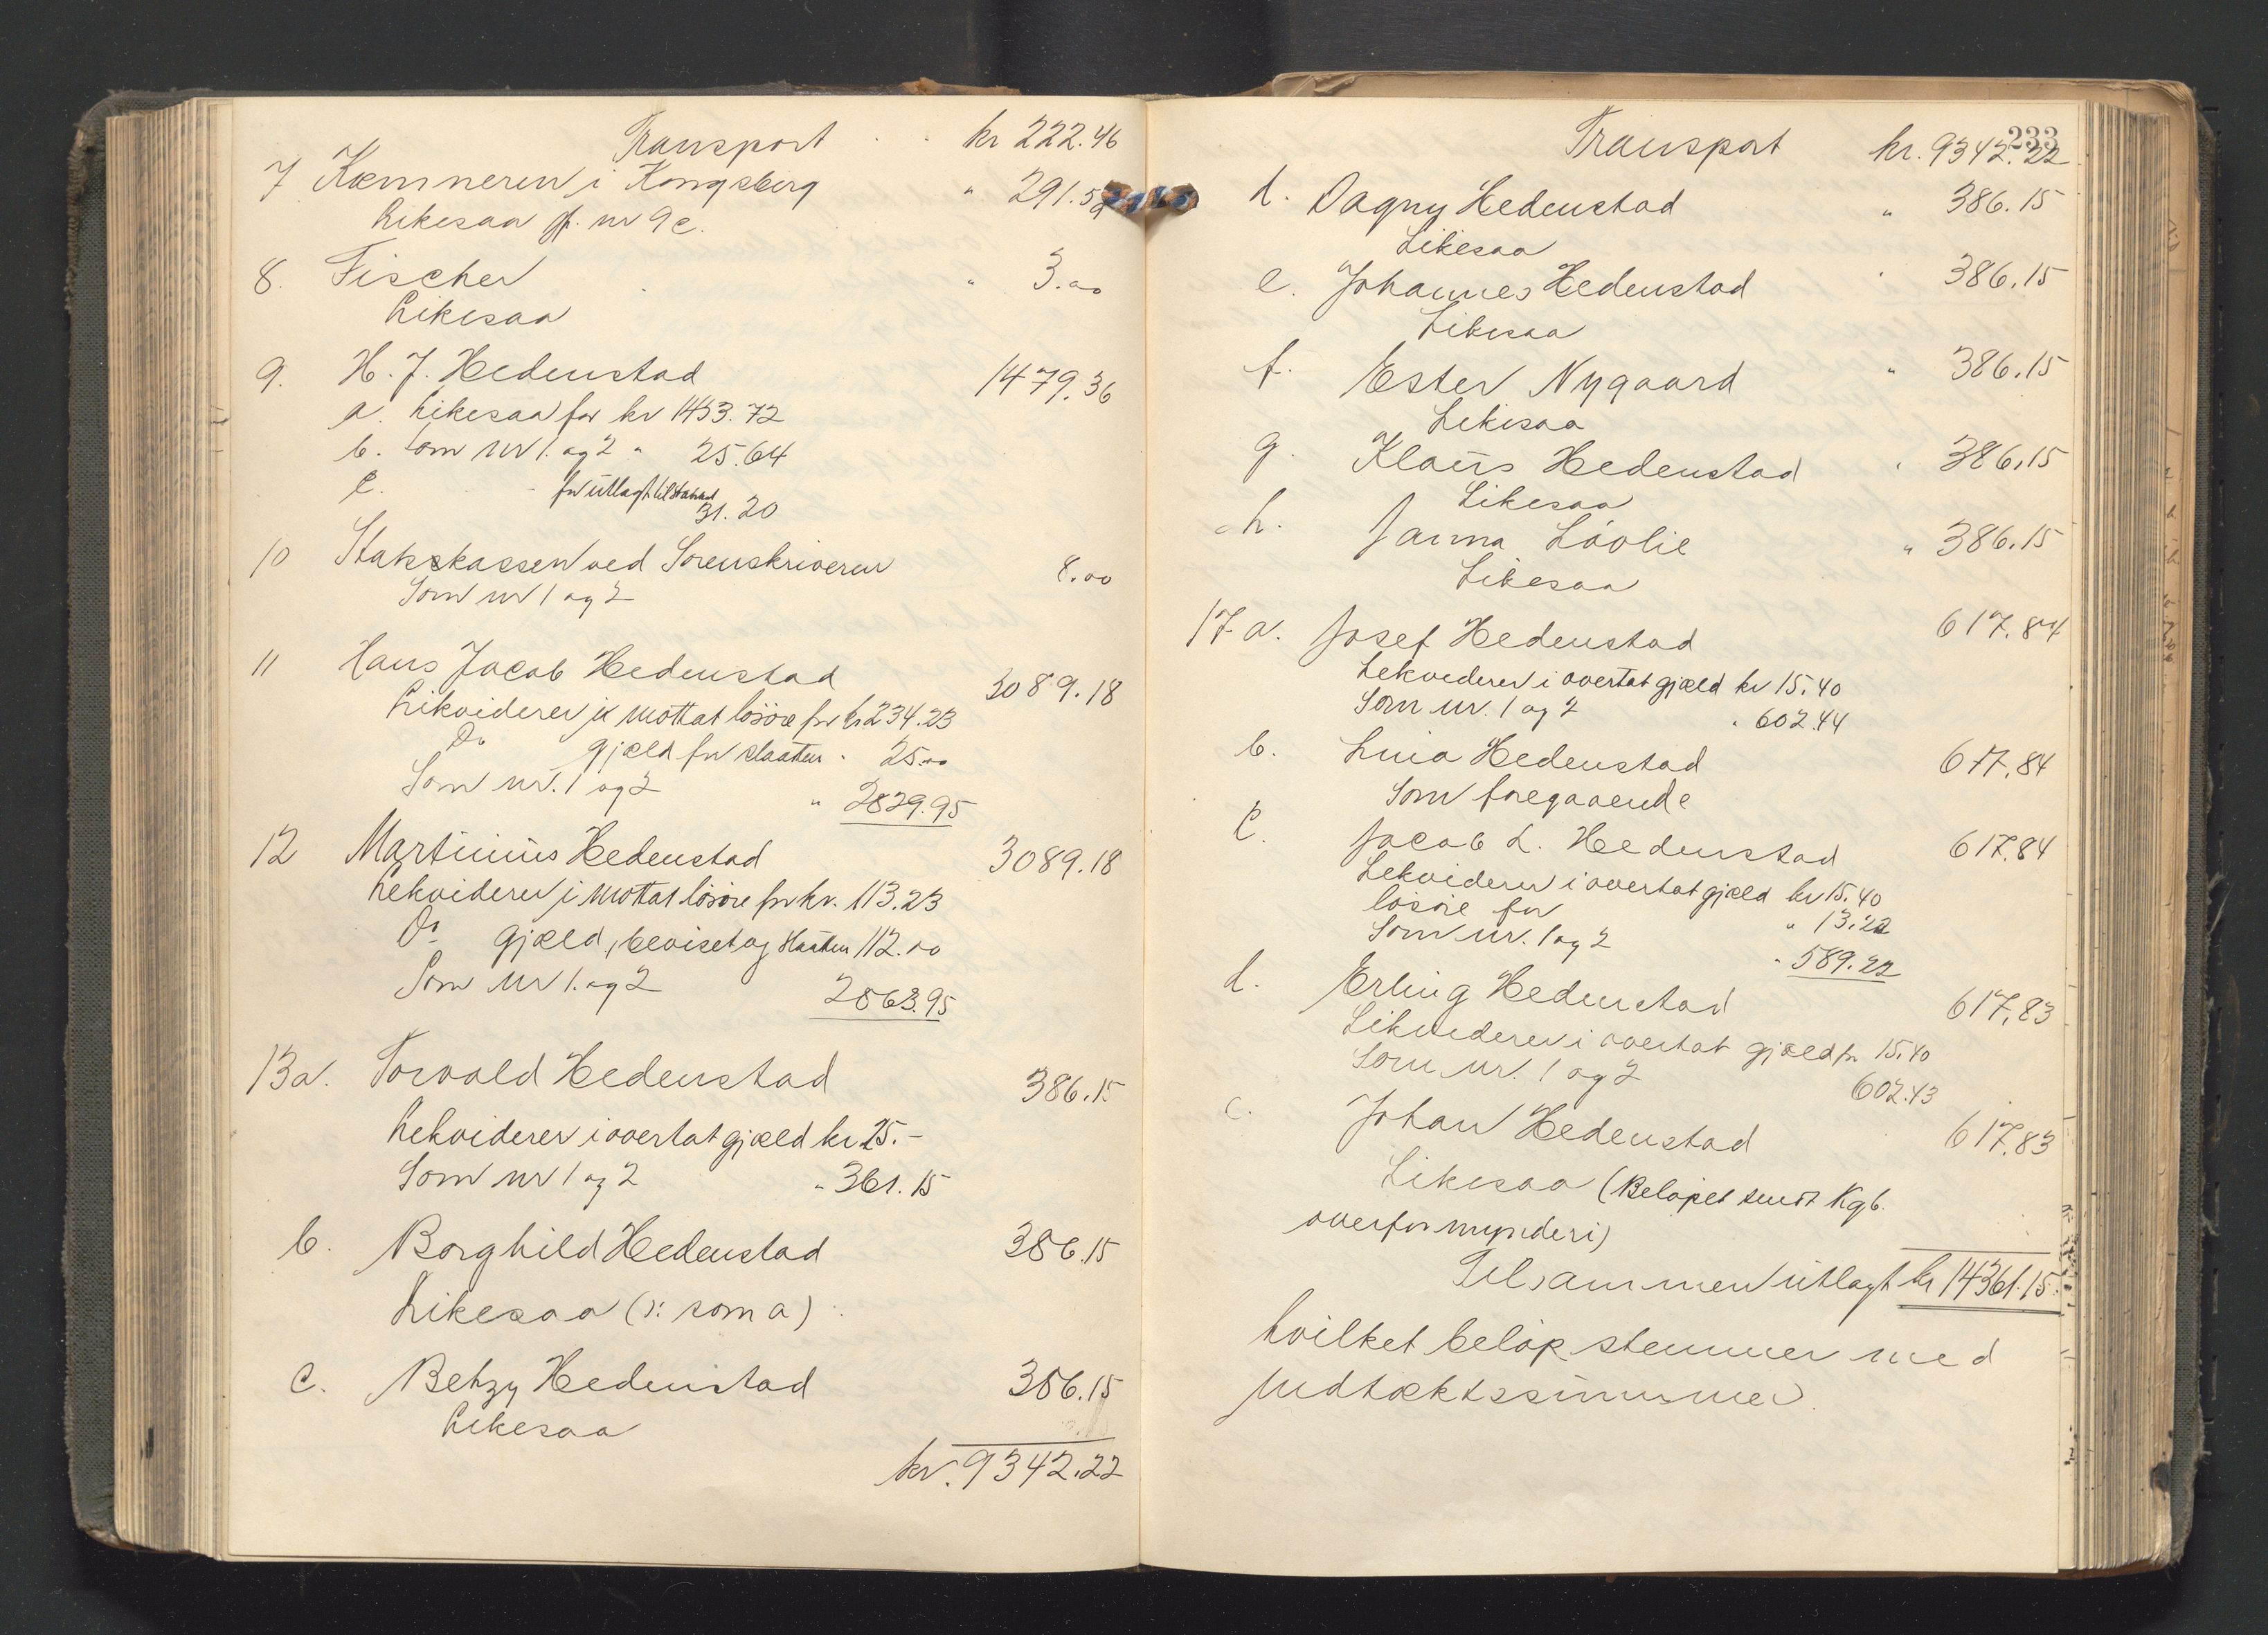 Transport . . kr 222.46
7 Kæmneren i Kongsberg " 291.59
Likesaa jf. nr 9 c.
8. Fischer . " 3.00
Likesaa
9. H. J. Hedenstad 1479.36
a. Likesaa for kr 1453.72
b. Som nr 1. og 2 " 25.64
c. - for utlagt til
31.20
10 Statskassen ved Sorenskriveren 8.00
Som nr 1 og 2
11 Hans Jacob Hedenstad 3089.18
Likviderer i mottat løsøre for kr 234.23
Do gjæld for slaatten " 25.00
Som nr. 1 og 2 " 2829.95
12 Martinius Hedenstad 3089.18
Likviderer i mottat løsøre for kr. 113.23
Do gjæld, beviset og slaatten 112.00
Som nr 1. og 2 2863.95
13a. Torvald Hedenstad 386.15
Likviderer i overtat gjæld kr 25.-
Som nr 1 og 2 " 361.15
b. Borghild Hedenstad 386.15
Likesaa (ɔ: som a)
c. Betzy Hedenstad 386.15
Likesaa
kr. 9342.22
233
Transport kr. 9342.22
d. Dagny Hedenstad " 386.15
Likesaa
e. Johannes Hedenstad " 386.15
Likesaa
f. Ester Nygaard " 386.15
Likesaa
g. Klaus Hedenstad " 386.15
Likesaa
h. Janna Lóvlie " 386.15
Likesaa
17 a. Josef Hedenstad 617.84
Likviderer i overtat gjæld kr 15.40
Som nr. 1 og 2 " 602.44
b. Lina Hedenstad 617.84
Som foregaaende
c. Jacob L. Hedenstad 617.84
Likviderer i overtat gjæld kr 15.40
løsøre for " 13.22
Som nr. 1 og 2 " 589.22
d. Erling Hedenstad 617.83
Likviderer i overtat gjæld fr. 15.40
Som nr. 1 og 2 602.43
e. Johan Hedenstad 617.83
Likesaa (Beløpet sendt Kgb.
overformynderi)
Tilsammen utlagt kr 14361.15
hvilket beløp stemmer med
Indtæktssummen.